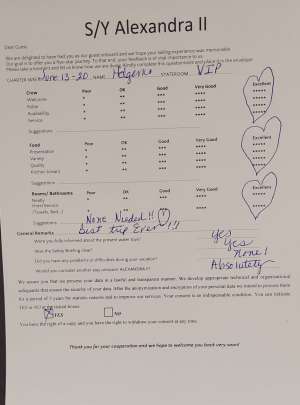 S/Y Alexandra II
Dear Guest,
We are delighted to have had you as our guest onboard and we hope your sailing experience was memorable.
Our goal is to offer you a five-star journey. To that end, your feedback is of vital importance to us.
Please take a moment and let us know how we are doing. Kindly complete this questionnaire and place it in the envelope
CHARTER June 13-20 NAME STATEROOM VIP
Crew Poor OK Good Very Good Excellent
Welcome * ** *** **** *****
Polite * ** *** **** *****
Availability * ** *** **** *****
Service * ** *** **** *****
Suggestions
Food Poor OK Good Very Good Excellent
Presentation * ** *** **** *****
Variety * ** *** **** *****
Quality * ** *** **** *****
Kitchen onward * ** *** **** *****
Suggestions
Rooms/ Bathrooms Poor OK Good Very Good Excellent
Neatly * ** *** **** *****
Hotel Service
(Towels, Bed..) * ** *** **** *****
Suggestions None Needed!!
General Remarks best trip Ever!!!
Were you fully informed about the present water toys? Yes
Was the Safety Briefing clear? Yes
Did you have any problem or difficulties during your vacation? None!
Would you consider another trip onboard ALEXANDRA II? Absolutely
We assure you that we process your data in a lawful and transparent manner. We develop appropriate technical and organizational
safeguards that ensure the security of your data. After the anonymization and encryption of your personal data we intend to process them
for a period of 5 years for statistic reasons and to improve our services. Your consent is an indispensable condition. You can indicate
YES or NO in the related boxes.
YES NO
You have the right of a copy and you have the right to withdraw your consent at any time.
Thank you for your cooperation and we hope to welcome you back very soon!